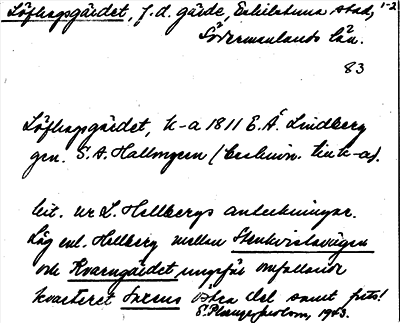 Löfhagsgärdet, f.d. gärde, Eskilstuna stad, 1-2
Södermanlands län.
83
Löfhagsgärdet, k-a 1811 E.Å. Lindberg
gm. S.A. Hallongren (beskrivn. till k-a).
lit. ur L. Hellbergs anteckningar.
Låg enl. Hellberg mellan Stenkvistavägen
och Kvarngärdet, ungefär omfattande
kvarteret Saxens östra del samt
1943.